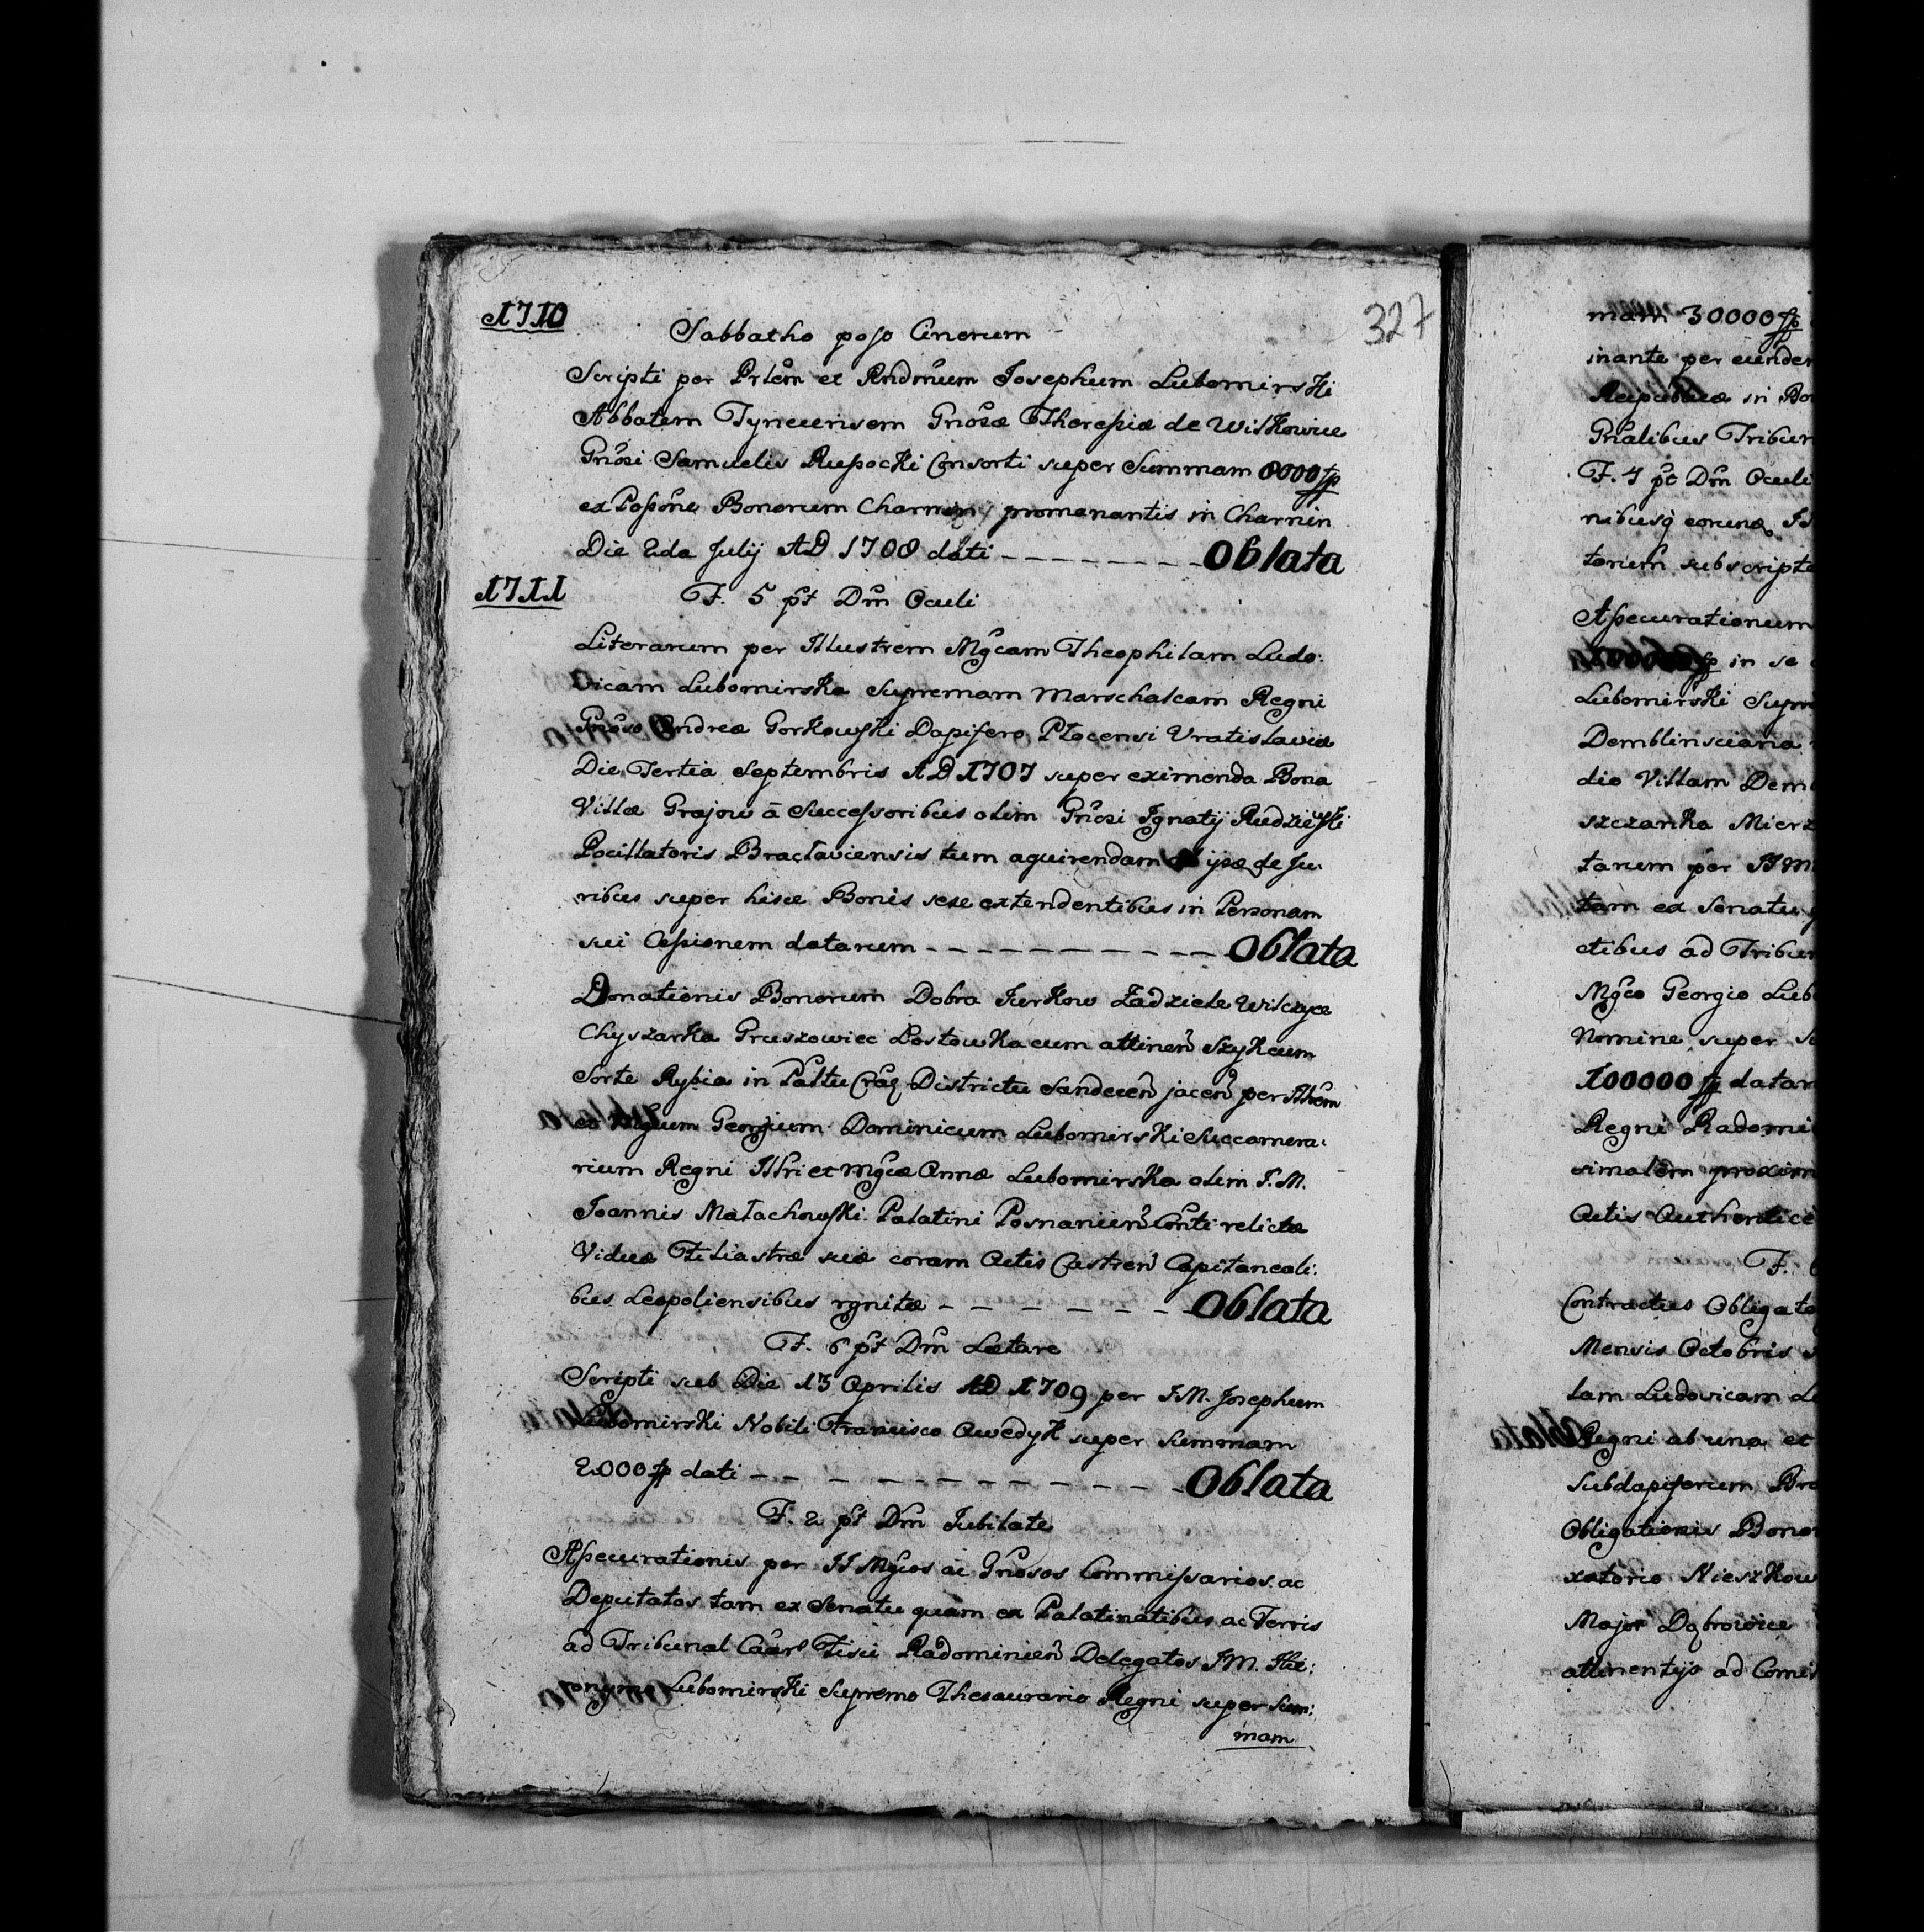 327
1710
Sabbatho post Cinerum
Scripti per Prlem et Rndmum Josephum Lubomirski
Abbatem Tynecensem Gnosæ Theresiæ de Witkowice
Gnosi Samuelis Rupocki Consorti super Summam 8000 fp
ex Possone Bonorum Charnin promanantis in Charnin
Die 2da Julij AD 1708 dati - - - - - - - Oblata
1711
F. 5 pt Dm Oculi
Literarum per Illustrem Mgcam Theophilam Ludo:
vicam Lubomirska Supremam Marschalcam Regni
Gnoso Andreæ Gorkowski Dapifero Płocensi Vratislaviæ
Die Tertia Septembris AD 1707 super eximenda Bona
Villæ Grajow a Successoribus olim Gnosi Ignatij Rudzieski
Pocillatoris Bracłaviensis tum aquirendam ipsæ de Ju:
ribus super hisce Bonis sese extendentibus in Personam
sui Cessionem datarum - - - - - - - - - - Oblata
Donationis Bonorum Dobra Jurkow Zadziele Wilczyce
Chyszarka Gruszowiec Postowka cum attinen Szyk cum
Sorte Rybia in Pałtu Craq Districtu Sandecen jacen per Illrem
et Mgcum Georgium Dominicum Lubomirski Succamera:
rium Regni Illri et Mgcæ Annæ Lubomirska olim J. M.
Joannis Małachowski Palatini Posnanien Conti relictæ
Viduæ Filiastræ suæ coram Actis Castren Capitaneali:
bus Leopoliensibus rgnitæ - - - - - - - Oblata
F. 6 pt Dm Lætare
Scripti sub Die 13 Aprilis AD 1709 per J.M. Josephum
Lubomirski Nobili Francisco Awedyk super Summam
2000 fp dati - - - - - - - - - - - Oblata
F. 2 pt Dm Jubilate
Assecurationis per JJ Mgcos ac Gnosos Commissarios ac
Deputatos tam ex Senatu quam ex Palatinatibus ac Terris
ad Tribunal Fisci Radominien Delegatos J M. Hie:
ronymo Lubomirski Supremo Thesaurario Regni super Sum:
mam
mam 30000 fp
inante per eunder
Reipublicæ in Bo
Gnalibus Tribun
F. 4 pt Dm Oculi
nibusq eorum
torum subscripte
Assecurationum
in se
Lubomirski Supr
Demblinsciana
dio Villam Dem
szczanka Mierz
tarum per JJ M
tam ex Senatu
ctibus ad Tribun
Mgco Georgio Lub
Nomine super Su
100000 fp datar
Regni Radomi
simalem proxim
Actis Authentice
F.
Contractus Obligato
Mensis Octobris
lam Ludovicam L
Regni ab una et
Subdapiferum Bra
Obligationis Bono
xatorio Nieszkow
Major Dąbrowice
attinentijs ad Comi